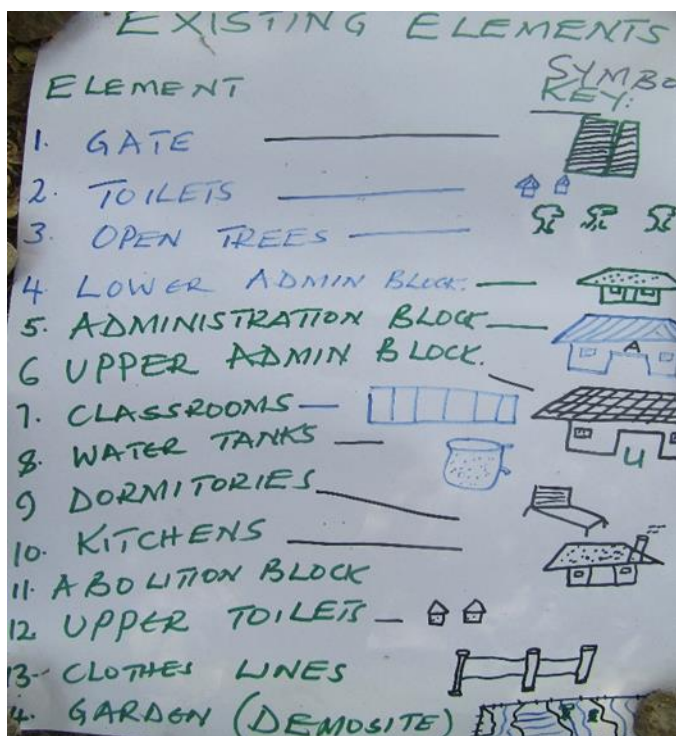 EXISTING ELEMENTS
ELEMENT
SYMBO
KEY:
1. GATE
2. TOILETS
3. OPEN TREES
4 LOWER ADMIN BLOCK.
5. ADMINISTRATION BLOCK
A
6 UPPER ADMIN BLOCK.
7. CLASSROOMS
U
8. WATER TANKS
9 DORMITORIES
10. KITCHENS
11. ABOLITION BLOCK
12 UPPER TOILETS
13- CLOTHES LINES
4. GARDEN (DEMOSITE)